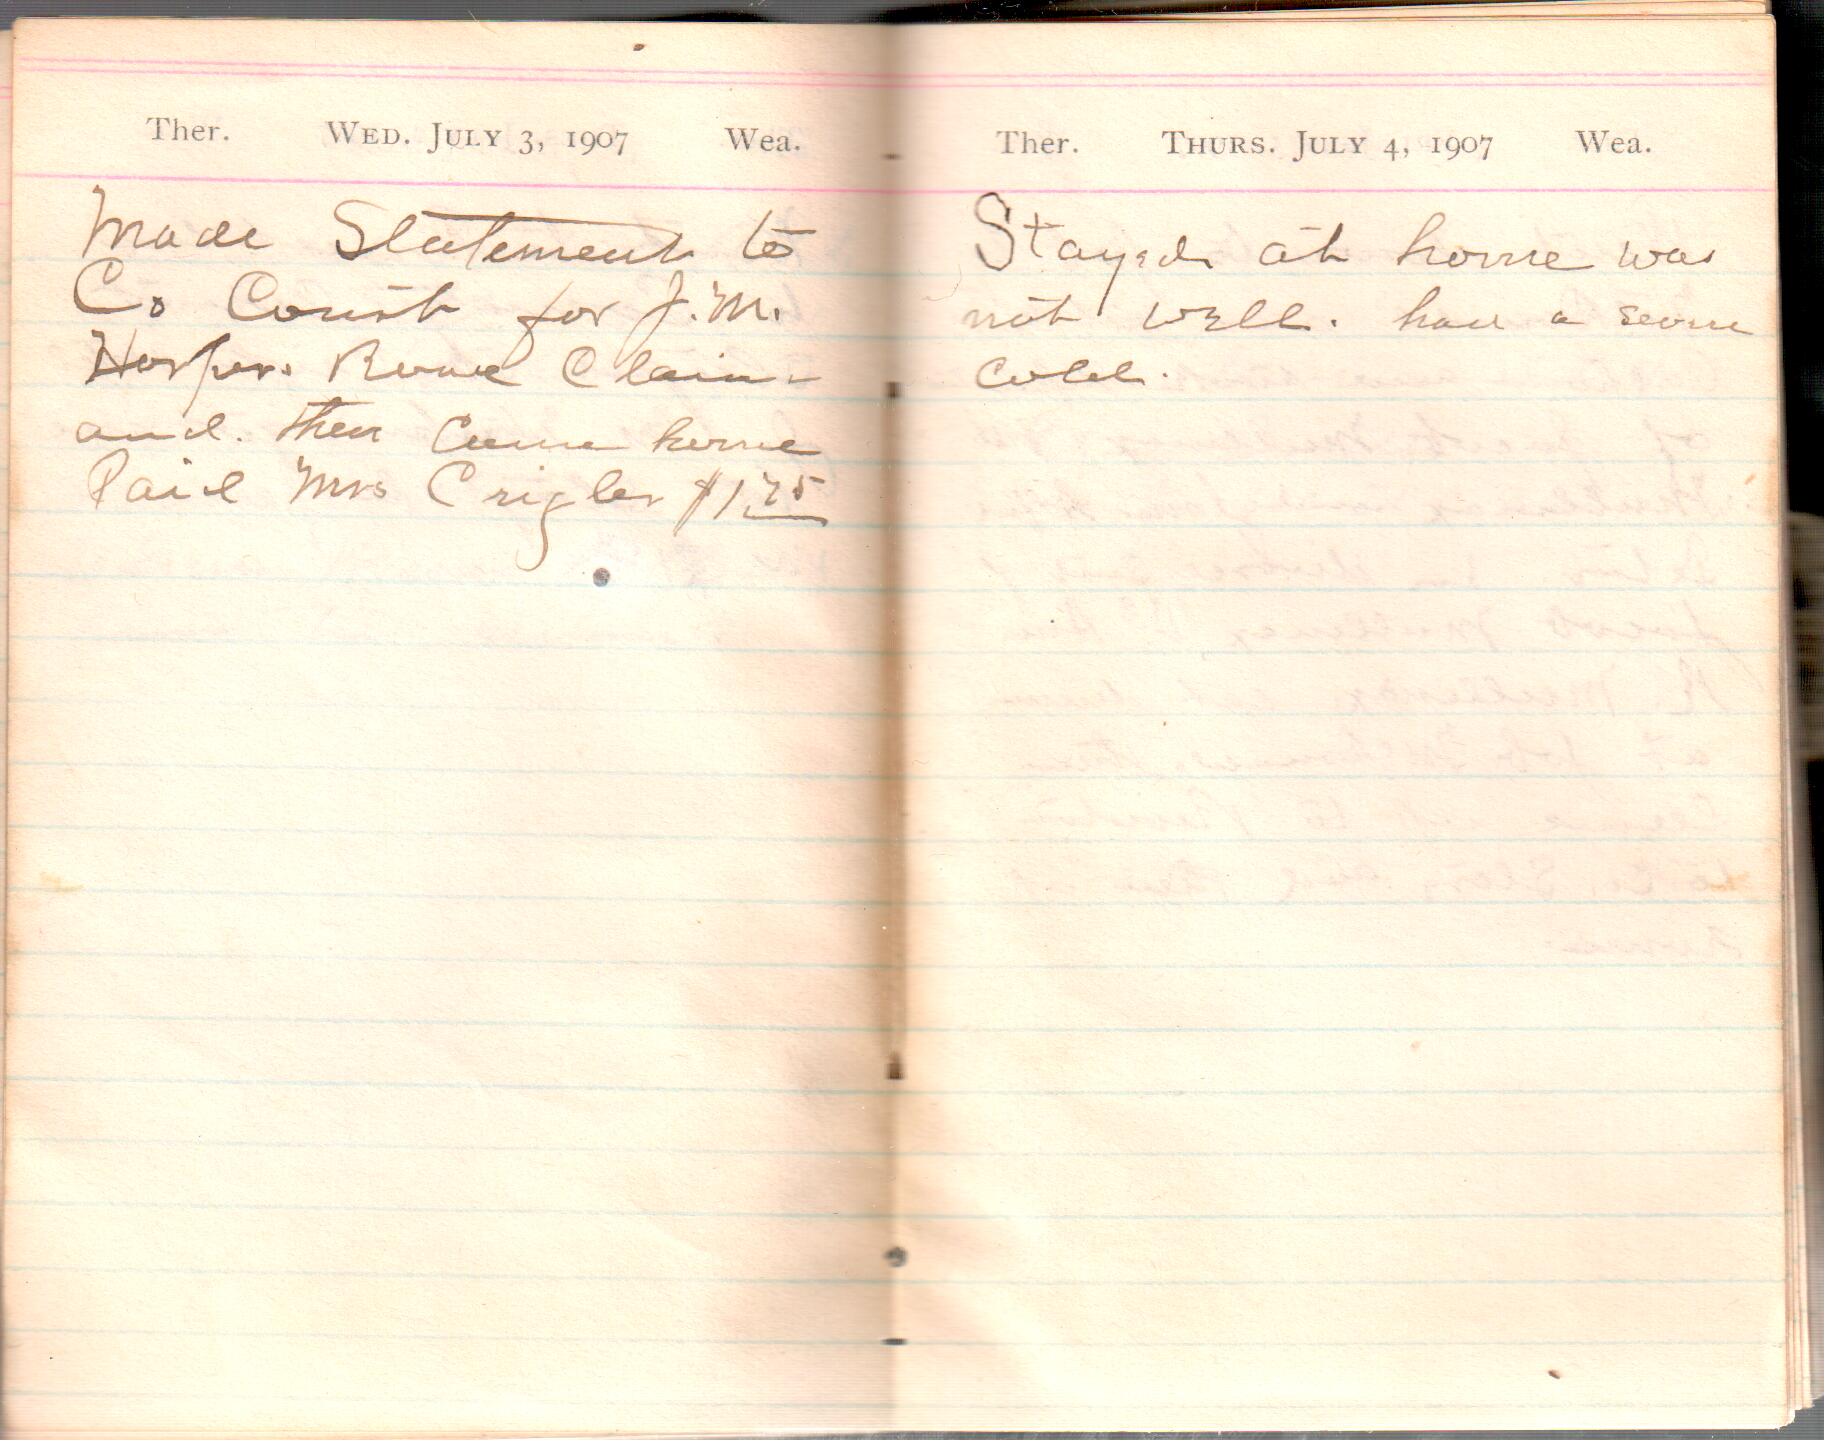 Ther. WED. JULY 3, 1907 Wea.
Made Statement to
Co Court for J. M.
Harper. Road Claim-
and. then Came home
Paid Mrs Crigler $1.75
Ther. THURS. JULY 4, 1907 Wea.
Stayed at home was
not well. had a severe
cold.